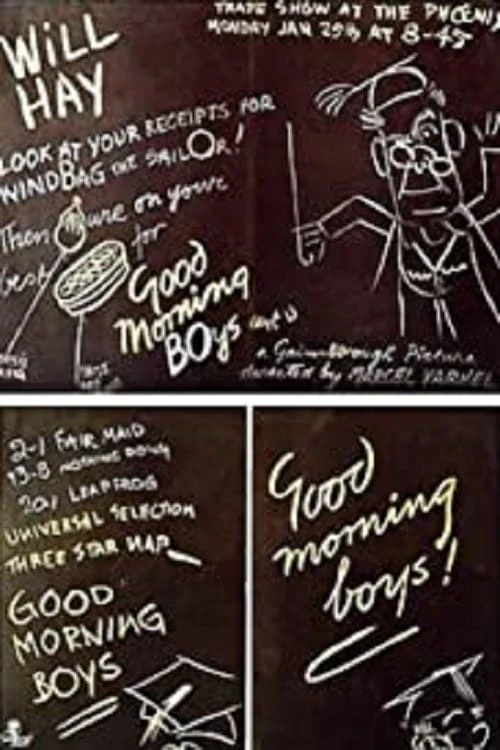 WILL
HAY
TRADE SHOW AT THE PHOENIX
MONDAY JAN 25th AT 8-45
LOOK AT YOUR RECEIPTS FOR
WINDBAG THE SAILOR!
Then on your
best for
Good
Morning
BOYS
a Gainsborough Picture
directed by MARCEL VARNEL
2-1 FAIR MAID
13-8
20/1 LEAPFROG
UNIVERSAL SELECTION
THREE STAR NAP
GOOD
MORNING
BOYS
Good
morning
boys!